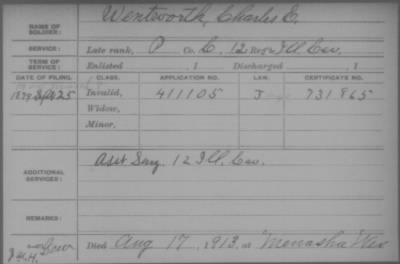 NAME OF SOLDIER: Wentworth, Charles E.
SERVICE: Late rank, P Co. C, 12 Reg't Ill Cav.
TERM OF SERVICE: Enlisted , 1 Discharged , 1
DATE OF FILING. CLASS. APPLICATION NO. LAW. CERTIFICATE NO.
1879 25 Invalid, 411105 J 731865
Widow,
Minor,
ADDITIONAL SERVICES: Asst Surg. 12 Ill. Cav.
REMARKS:
Died Aug 17, 1913, at Menasha Wis